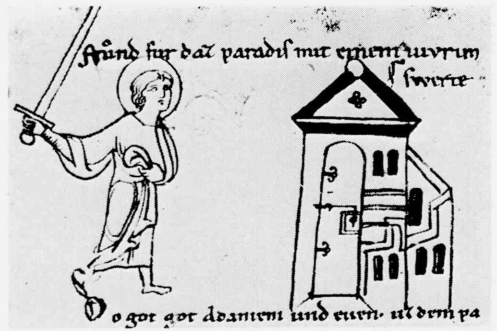 stůnd fur daz paradis mit einem uivrim
swerte
Do got got Adamem und even. uz dem pa